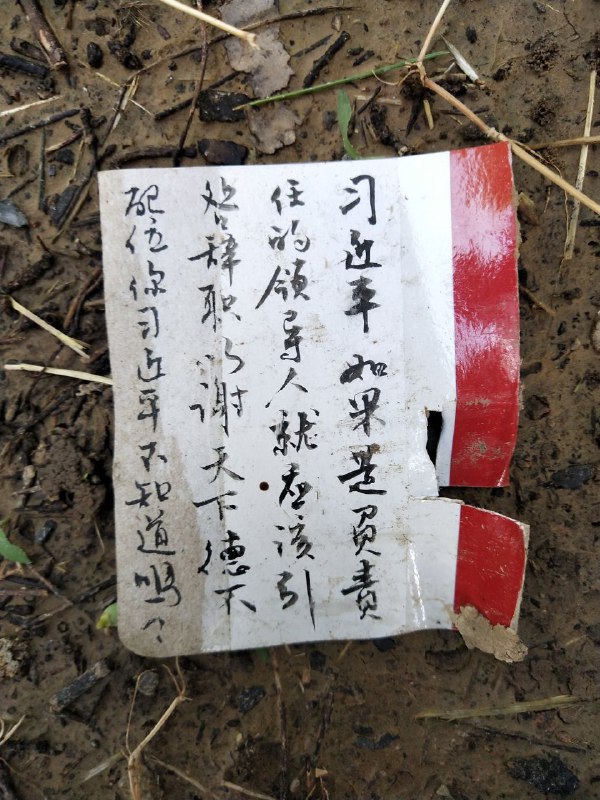 习近平如果是負責
任的領导人就应该引
咎辞职以谢天下德不
配位你习近平不知道吗？